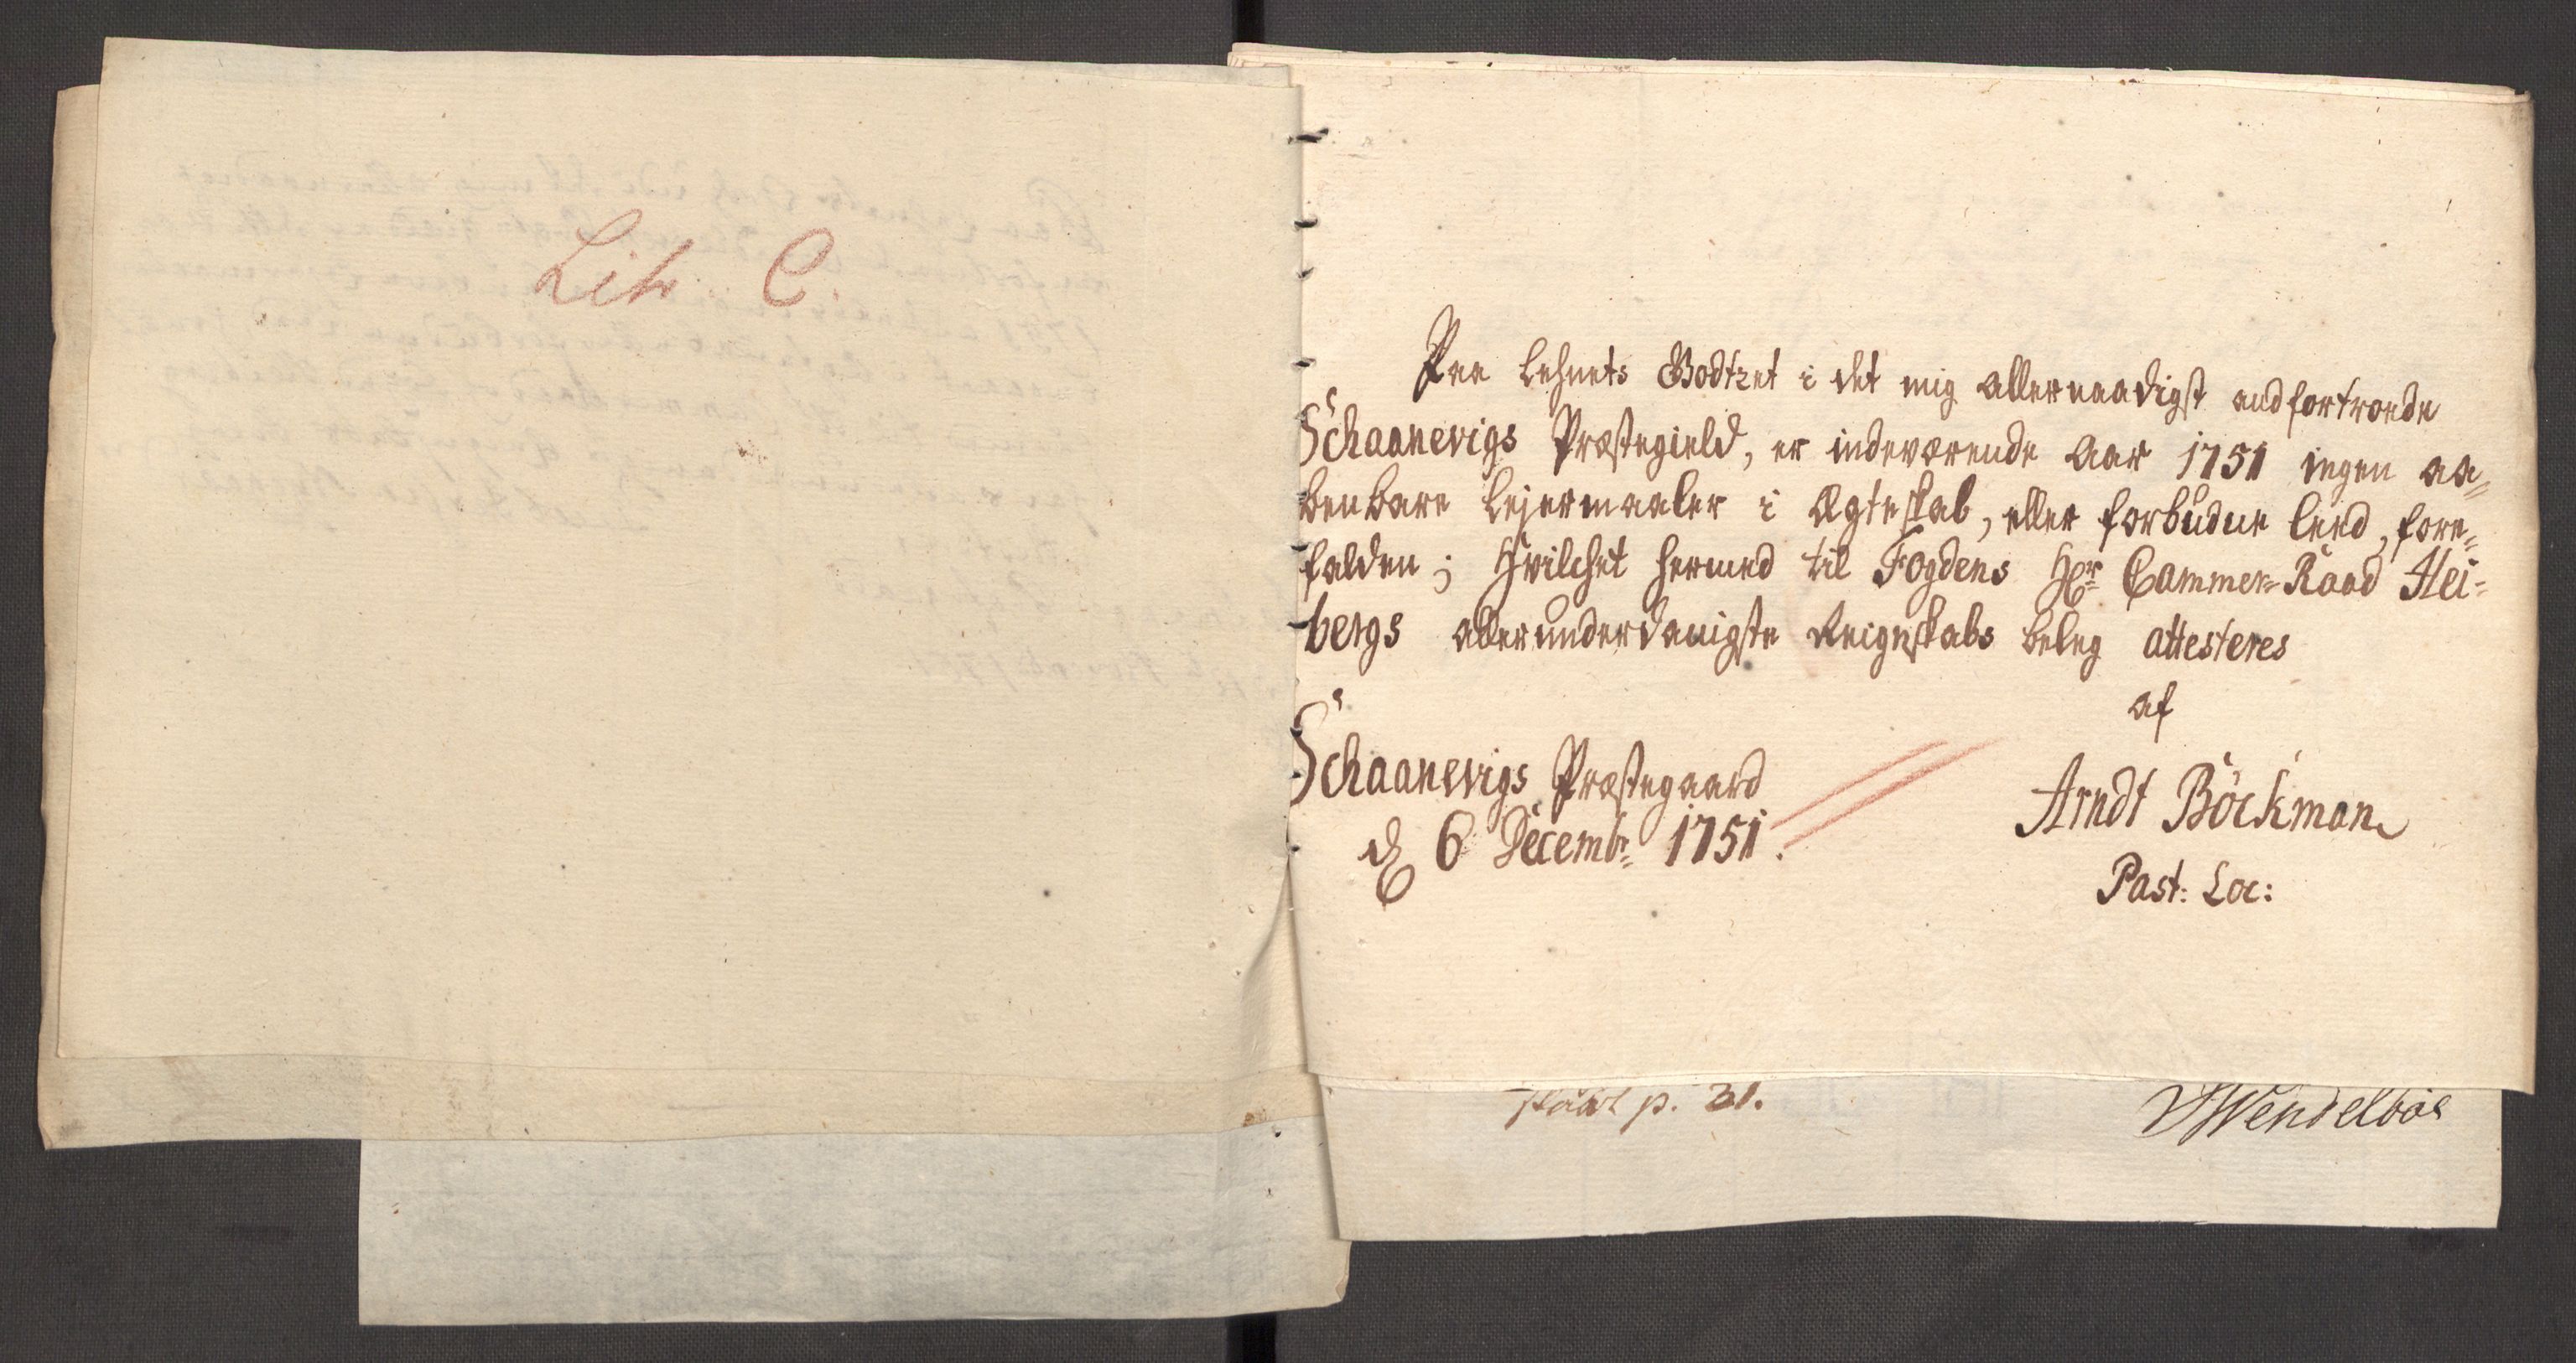 Litr. C.
Paa Lehnets Godtzet i det mig allernaadigst andfortroede
Schaanevigs Præstegield, er indeværende Aar 1751 ingen aa=
benbare Lejermaaler i Ægteskab, eller forbudne Leed, fore=
falden; Hvilchet hermed til Fogdens Hr Cammer-Raad Hei=
bergs allerunderdanigste Reignskabs beleg attesteres
af
Schaanevigs Præstegaard
d 6 Decembr 1751.
Arndt Böckman
Past: Loc:
p. 31.
Wendelboe